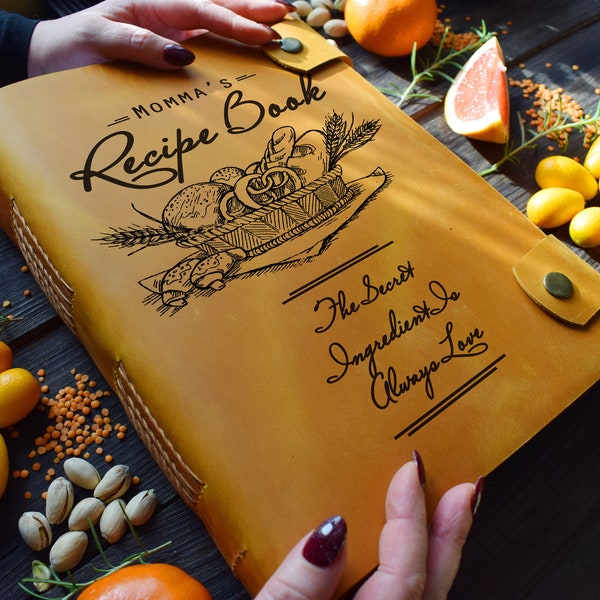 Momma's
Recipe Book
The Secret
Ingredient Is
Always Love